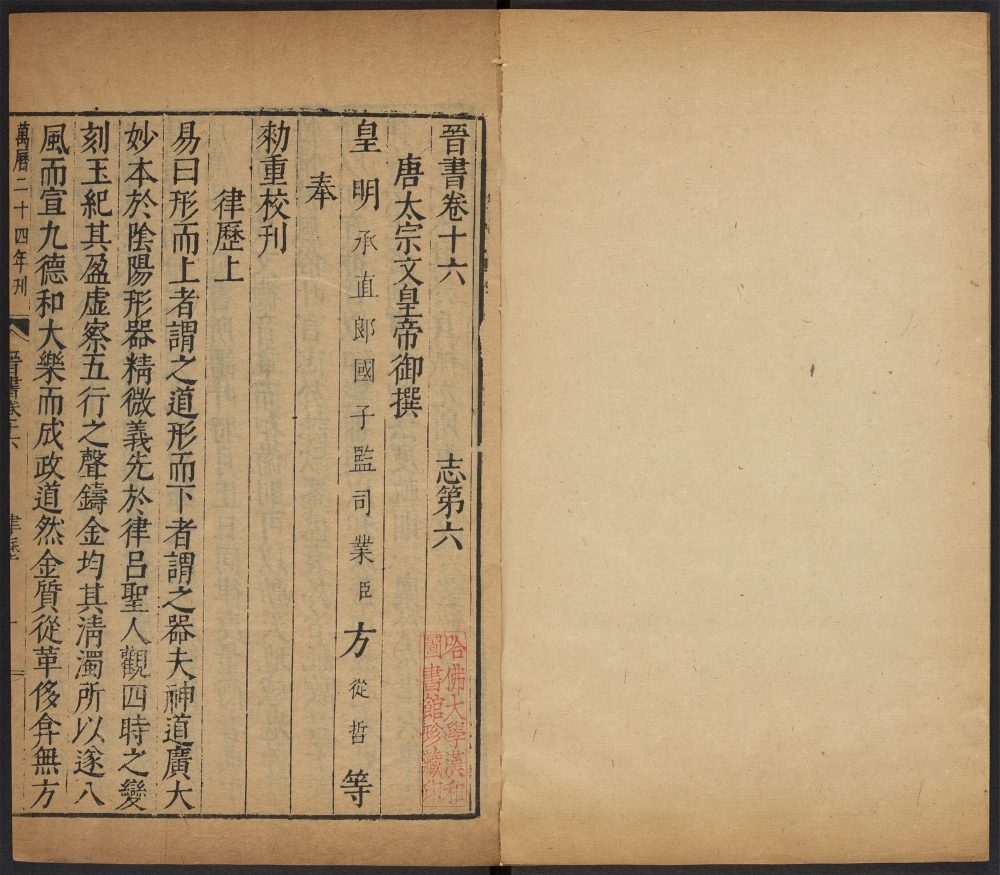 晉書卷十六 志第六
唐太宗文皇帝御撰
皇明承直郎國子監司業臣方從哲等
奉
勑重校刊
律歷上
易曰形而上者謂之道形而下者謂之器夫神道廣大
妙本於陰陽形器精微義先於律呂聖人觀四時之變
刻玉紀其盈虛察五行之聲鑄金均其清濁所以遂八
風而宣九德和大樂而成政道然金質從革侈弇無方
萬曆二十四年刊
晉書卷十六 律歷 一
哈佛大學漢和
圖書館珍藏印